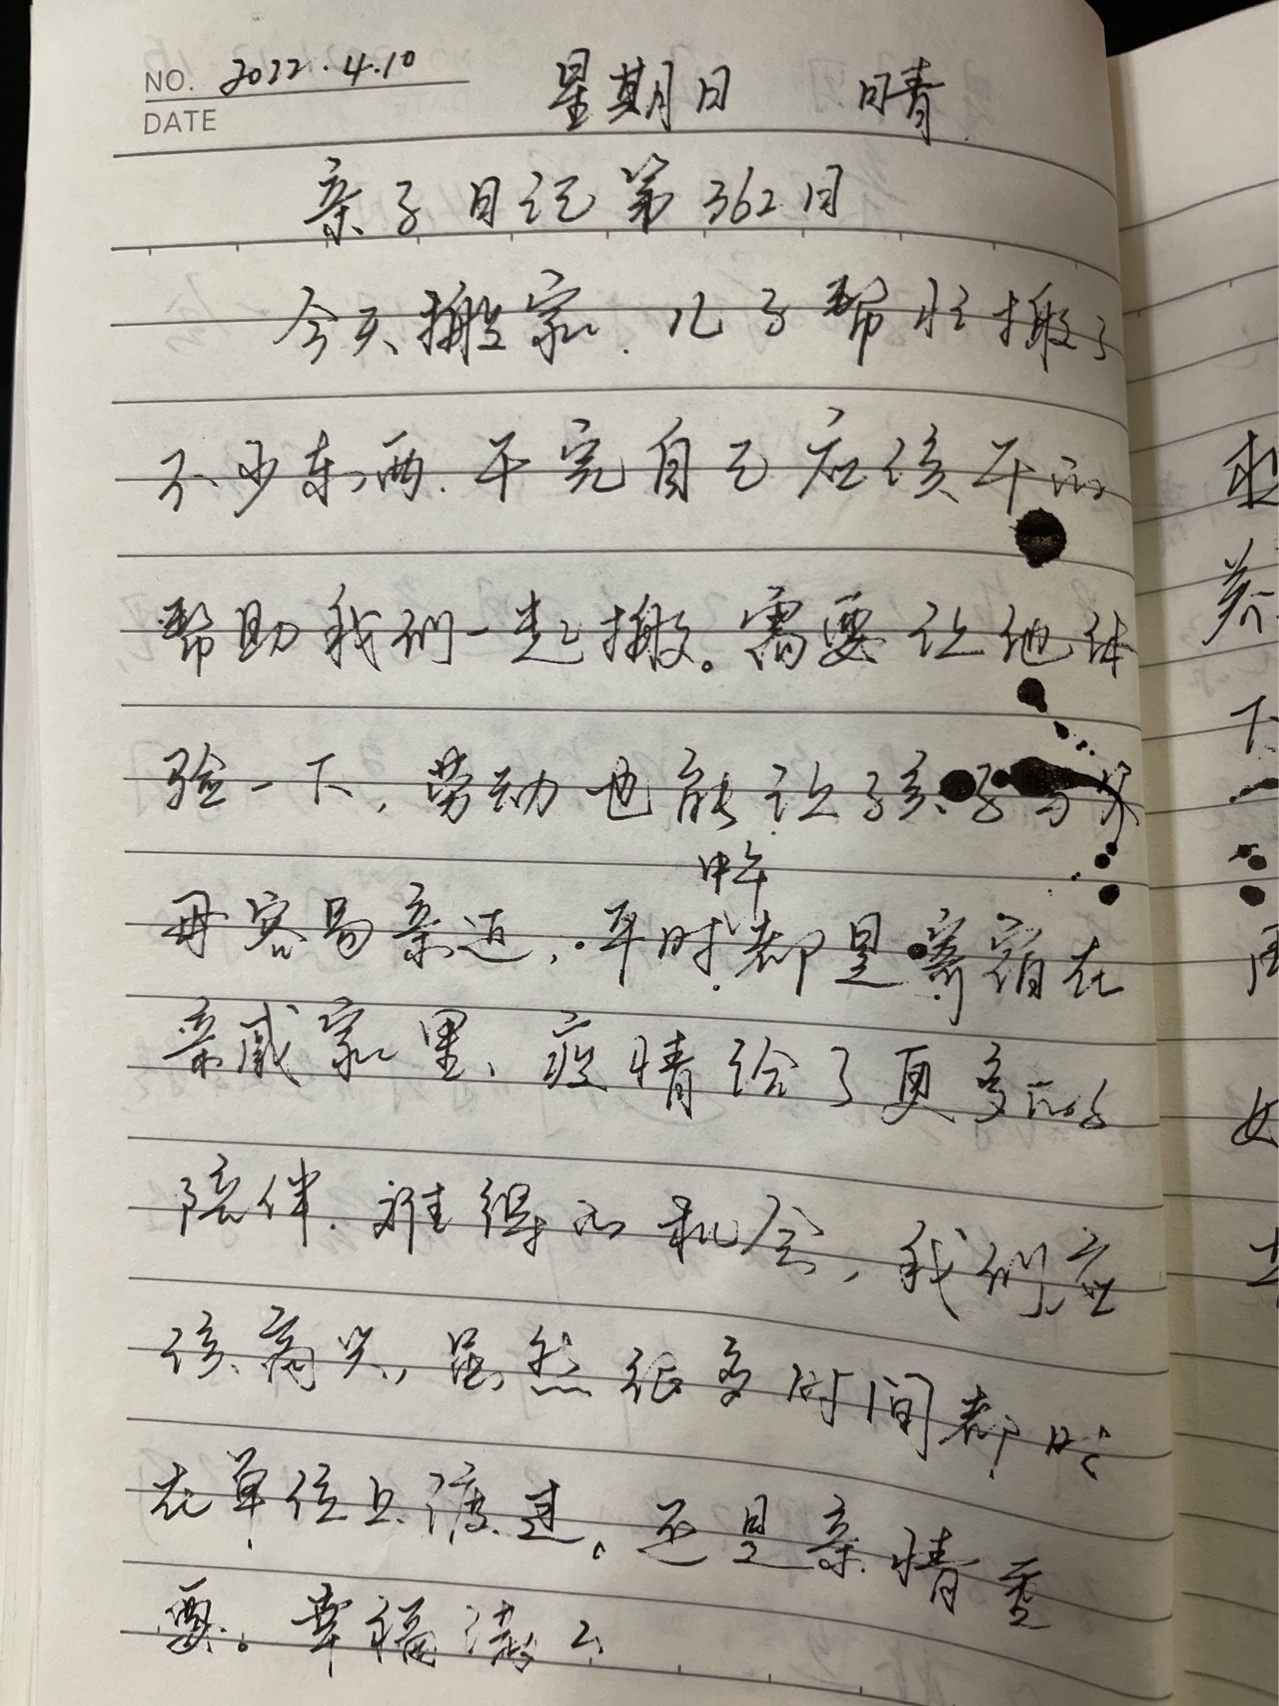 NO. 2022.4.10 星期日 晴
DATE
亲子日记第362日
今天搬家.儿子帮忙搬了
不少东西.干完自己应该干的
帮助我们一起搬。需要让他体
验一下,劳动也能让孩子与父
中午
母容易亲近,平时都是寄宿在
亲戚家里、疫情给了更多的
陪伴.难得的机会,我们应
该高兴,虽然很多时间都是
在单位上渡过。还是亲情重
要。幸福满满